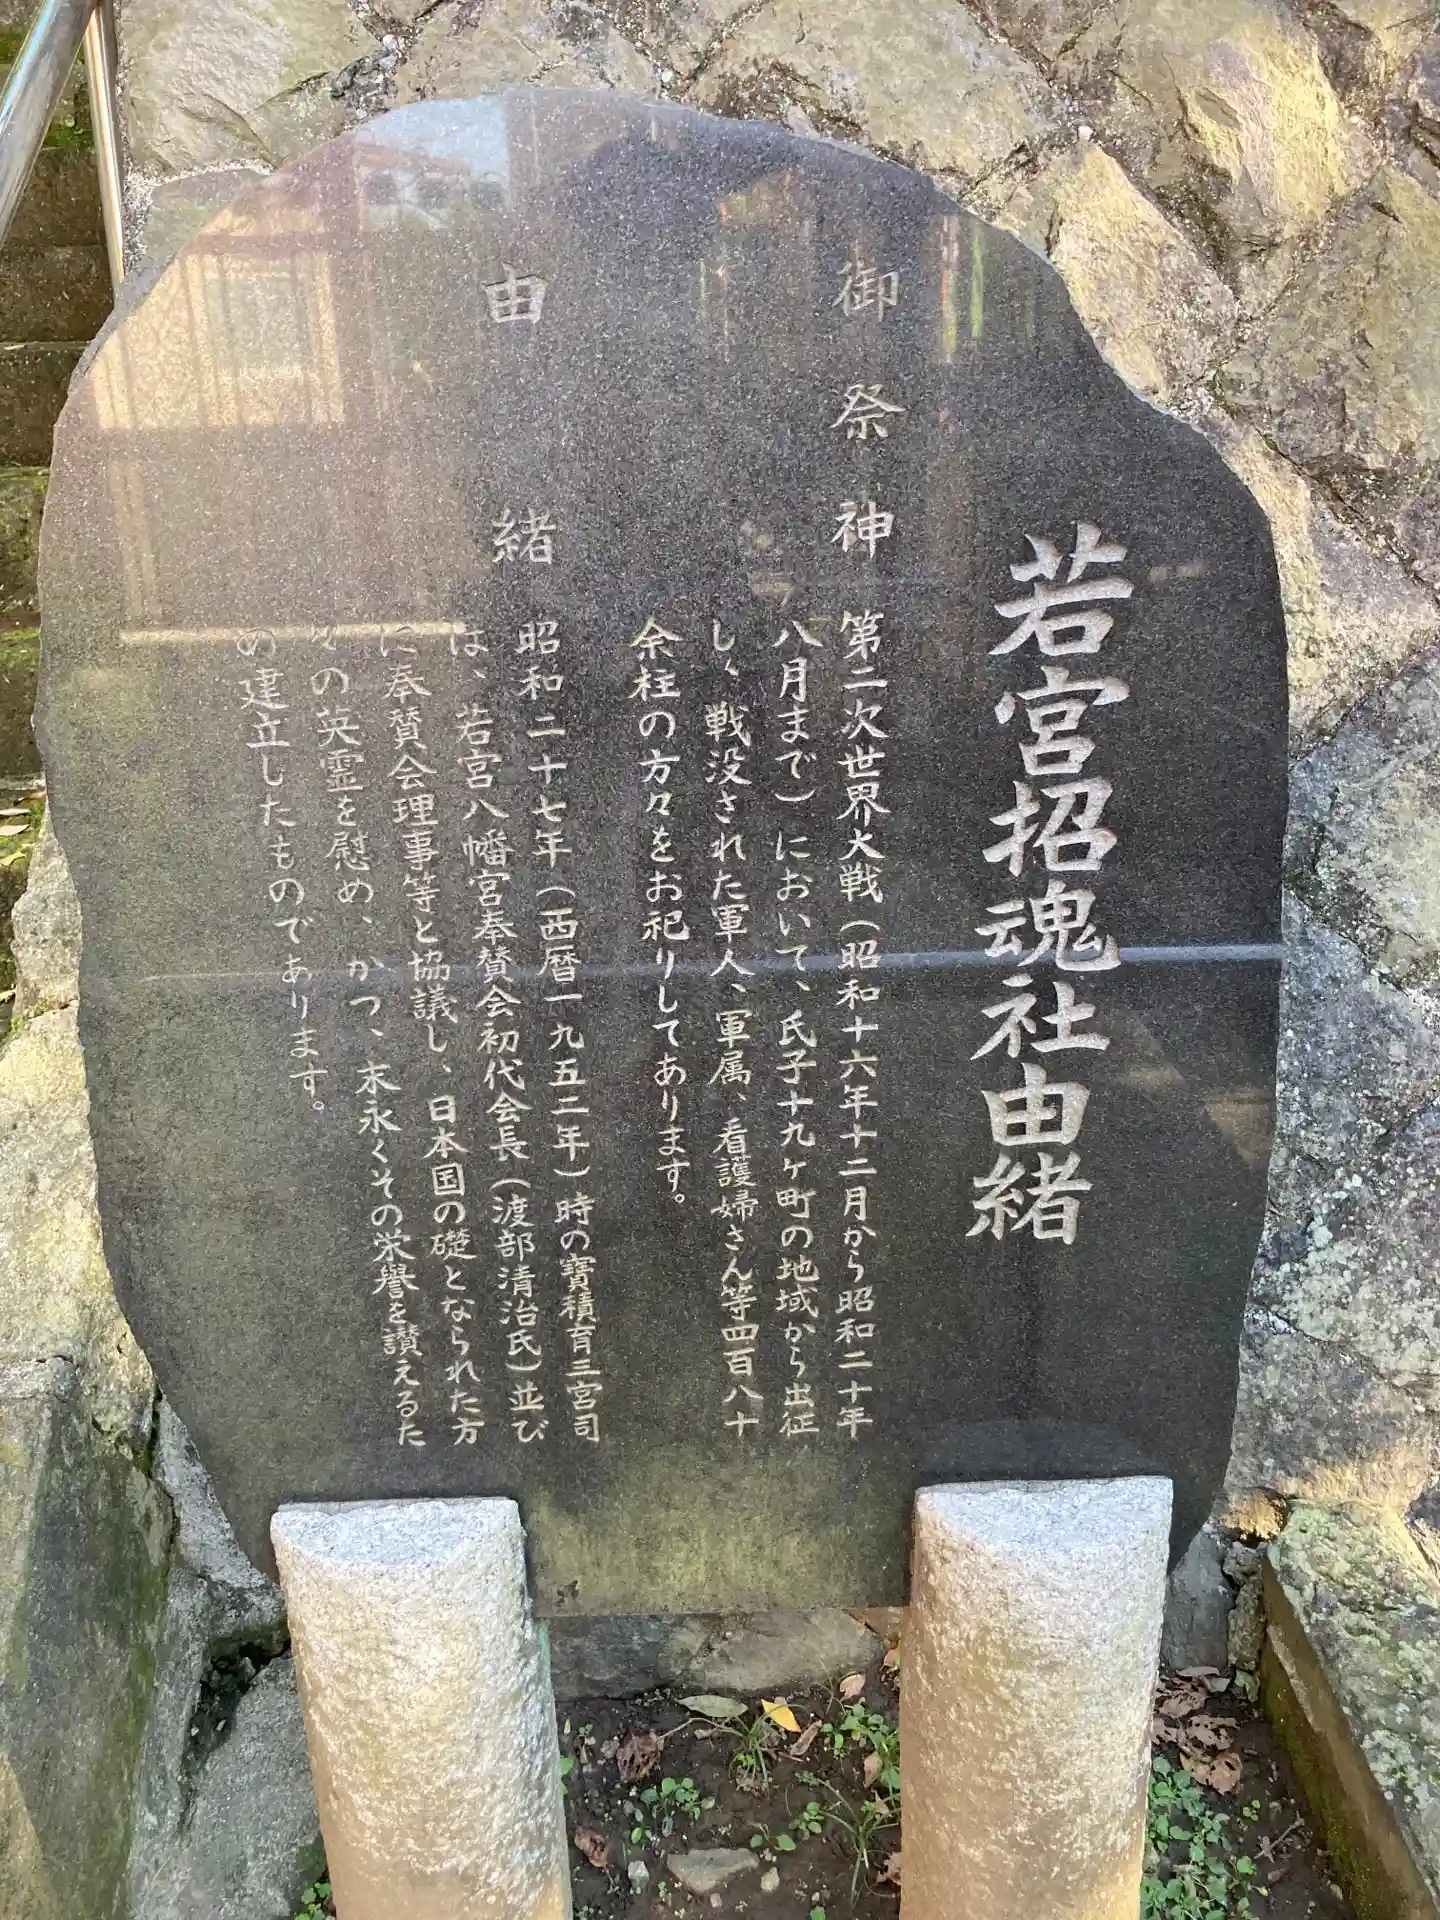 若宮招魂社由緒
御祭神
第二次世界大戦(昭和十六年十二月から昭和二十年
八月まで)において、氏子十九ヶ町の地域から出征
し、戦没された軍人、軍属、看護婦さん等四百八十
余柱の方々をお祀りしてあります。
由緒
昭和二十七年(西暦一九五二年)時の寶積育三宮司
は、若宮八幡宮奉賛会初代会長(渡部清治氏)並び
に奉賛会理事等と協議し、日本国の礎となられた方
々の英霊を慰め、かつ、末永くその栄譽を讃えるた
め建立したものであります。